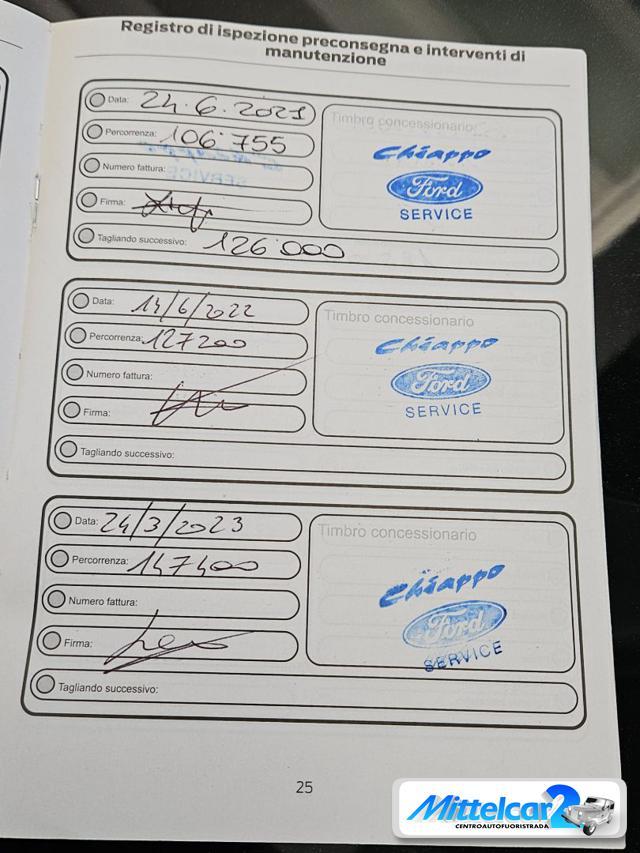 Registro di ispezione preconsegna e interventi di
manutenzione
Data: 24.6.2021
Percorrenza: 106.755
Numero fattura:
Firma:
Tagliando successivo: 126.000
Timbro concessionario
Chiappo
Ford
SERVICE
Data: 14/6/2022
Percorrenza: 127200
Numero fattura:
Firma:
Tagliando successivo:
Timbro concessionario
Chiappo
Ford
SERVICE
Data: 24/3/2023
Percorrenza: 147400
Numero fattura:
Firma:
Tagliando successivo:
Timbro concessionario
Chiappo
Ford
SERVICE
25
Mittelcar2
CENTROAUTOFUORISTRADA